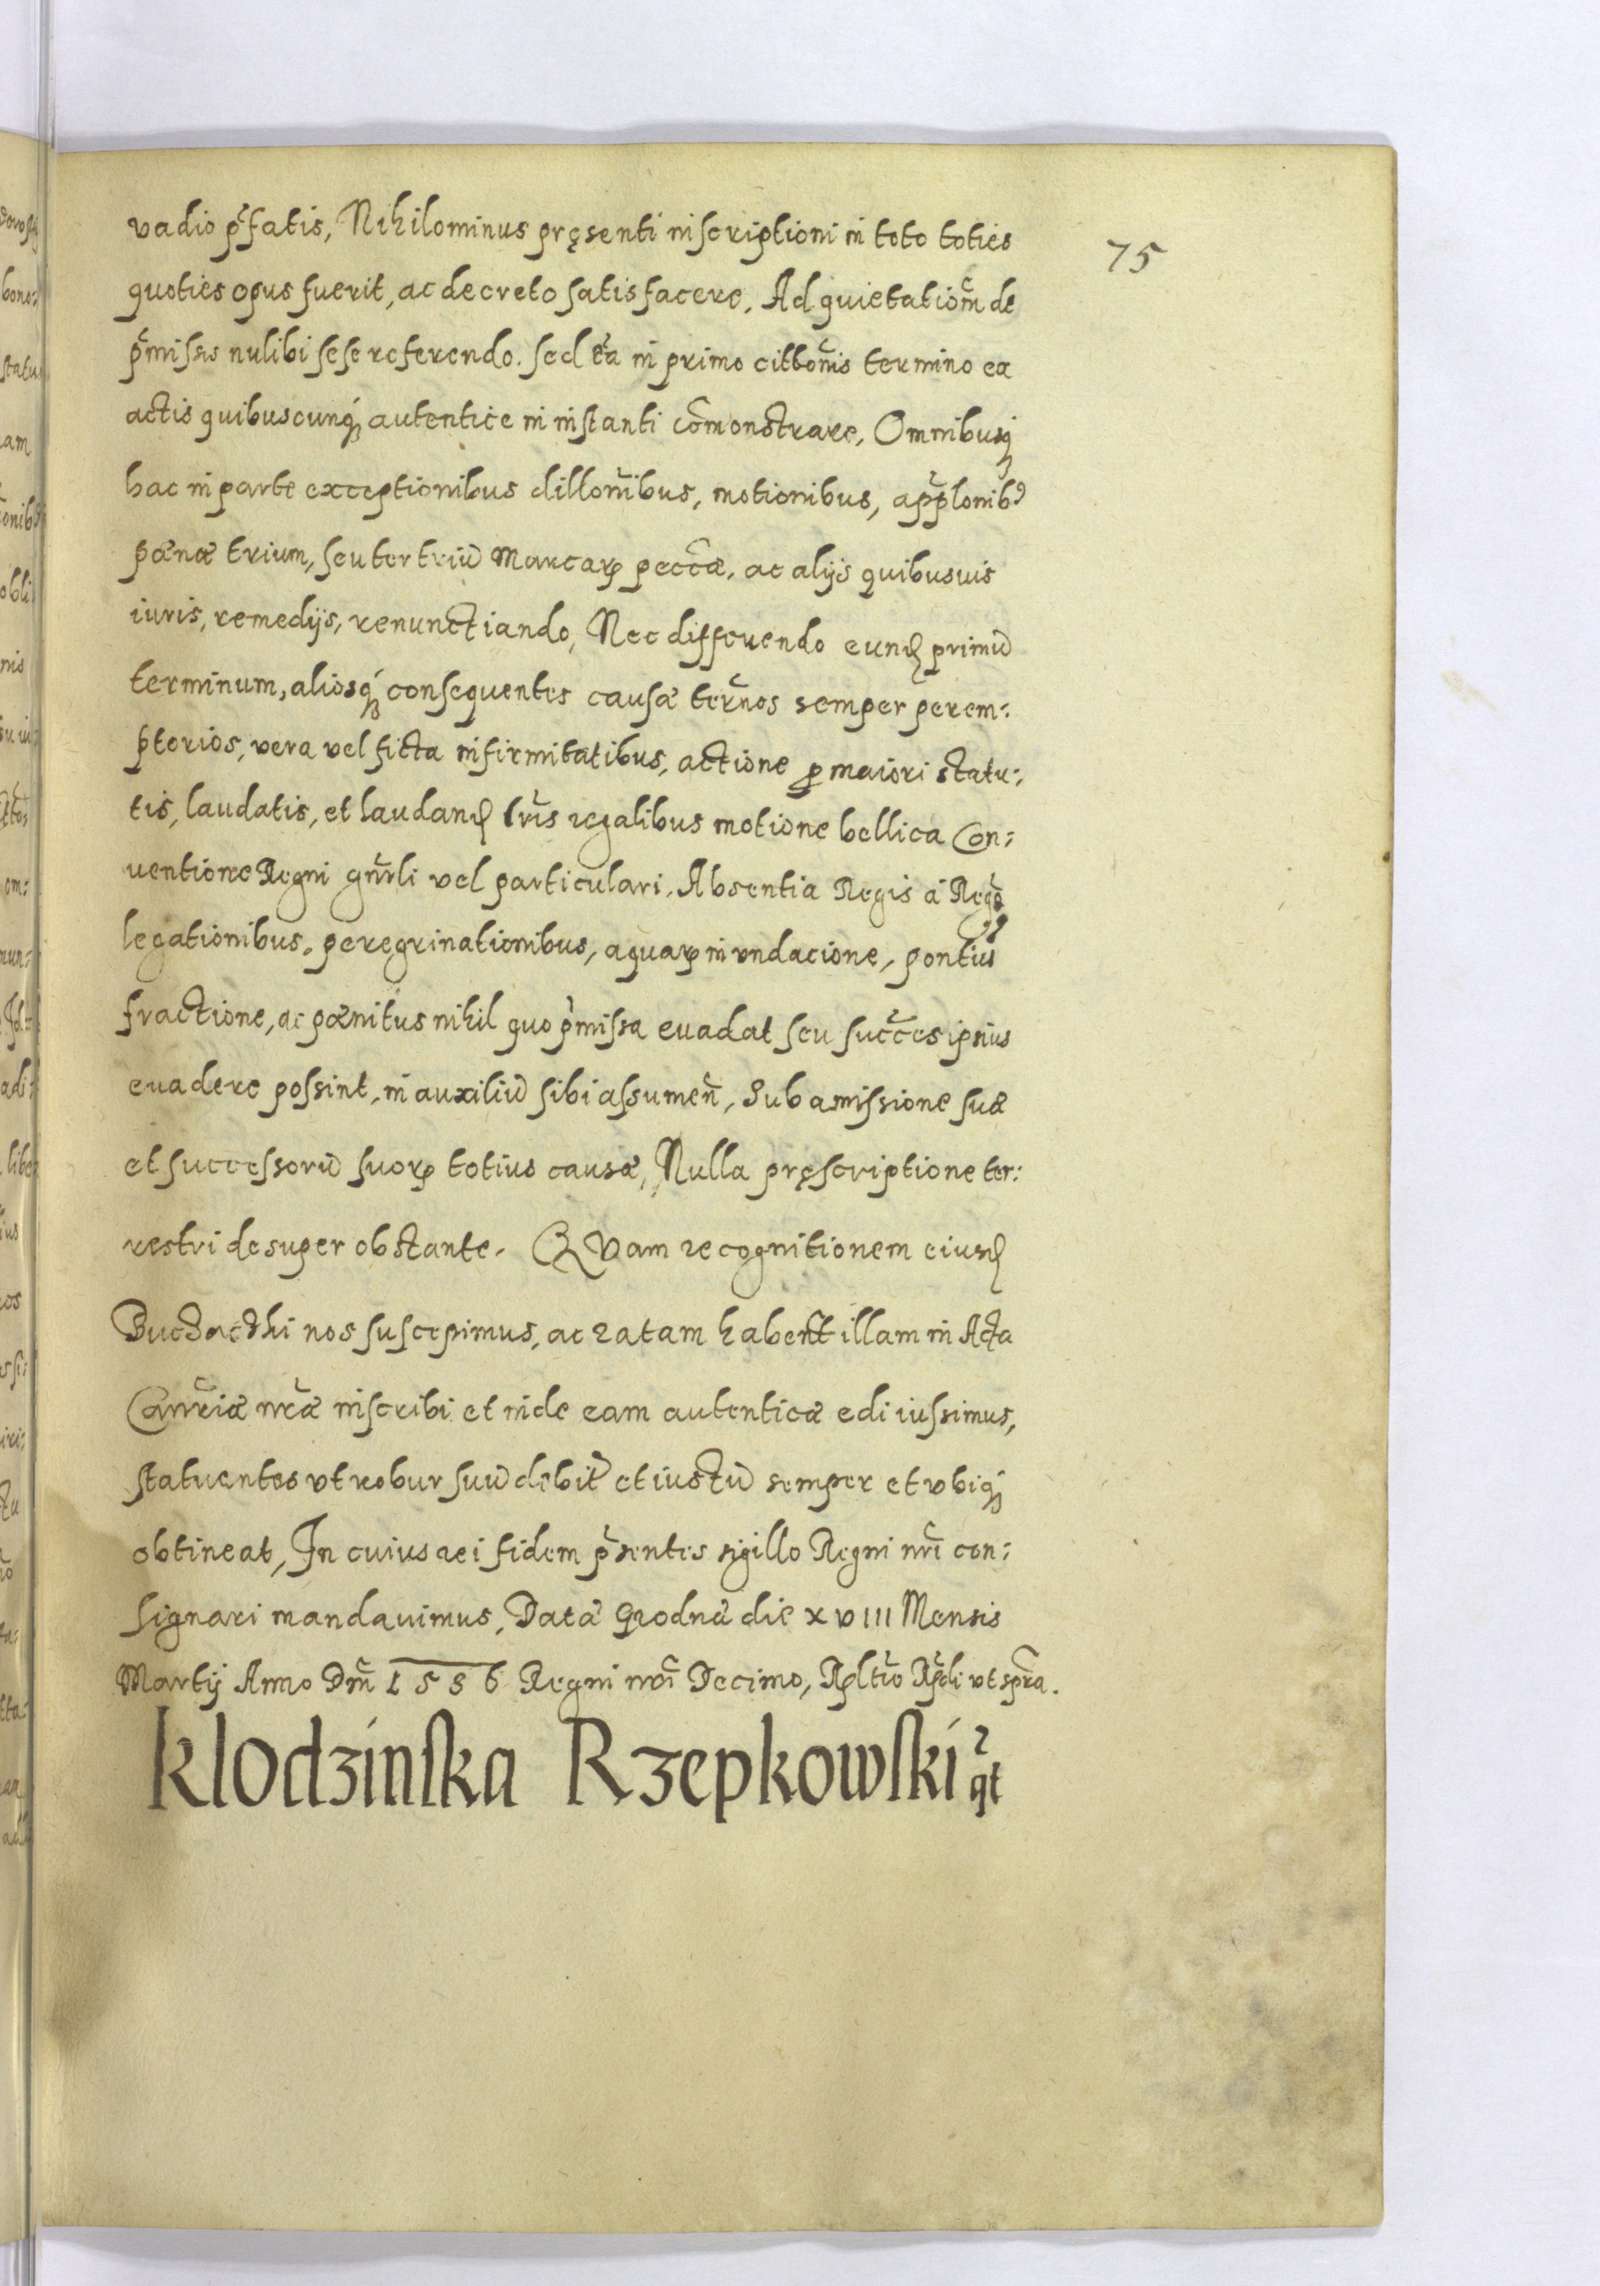 vadio p̃fatis, Nihilominus pręsenti inscriptioni in toto toties
75
quoties opus fuerit, ac decreto satisfacere, Ad quietatiom̃ de
p̃missis nulibi sese referendo. sed et̃a in primo cittbom̃is termino ex
actis quibuscunq́ autentice in instanti com̃onstrare, Omnibusq́
hac in parte exceptionibus dillom̃ibus, motionibus, app̃lonib9
pœnæ trium, seu ter triũ Marcarꝝ pecc̃æ, ac alijs quibusuis
iuris, remedijs, renunctiando, Nec differendo eund̃ primũ
terminum, aliosq́ consequentes causæ ter̃nos semper perem:
ptorios, vera vel ficta infirmitatibus, actione ꝓ maiori statu:
tis, laudatis, et laudand̃ lr̃is regalibus motione bellica Con:
uentione Regni gñrli vel particulari, Absentia Regis à Regõ
legationibus, peregrinationibus, aquarꝝ invndacione, pontiũ
fractione, ac pœnitus nihil quo p̃missa euadat seu succ̃es ipsius
euadere possint, in auxiliũ sibi assumeñ, Sub amissione suæ
et successorũ suorꝝ totius causæ, Nulla pręscriptione ter:
restri desuper obstante. QVam recognitionem eiusd̃
Buczaczki nos suscepimus, ac ratam habent illam in Acta
Canr̃iæ nr̃æ inscribi et inde eam autenticæ edi iussimus,
statuentes vt robur suũ debit̃ et iustũ semper et vbiq́
obtineat, In cuius rei fidem p̃sentes sigillo Regni nr̃i con:
signari mandauimus, Data Grodnæ die XVIII Mensis
Martij Anno Dm̃ 1586 Regni nr̃i Decimo, Rl̃tio Rp̃di vt sp̃ra.
Klodzinska Rzepkowski q̃t